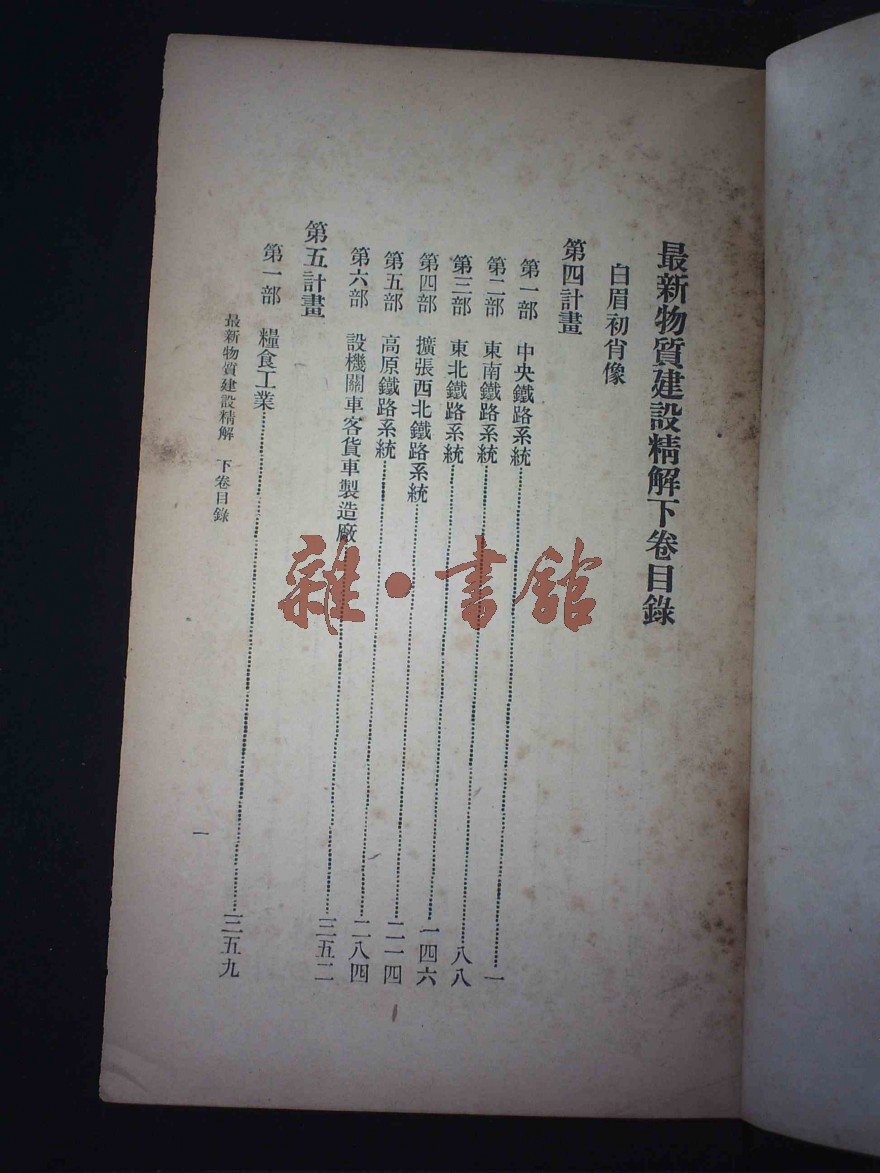 最新物質建設精解下卷目錄
白眉初肖像
第四計畫
第一部 中央鐵路系統 一
第二部 東南鐵路系統 八八
第三部 東北鐵路系統 一四六
第四部 擴張西北鐵路系統 二一四
第五部 高原鐵路系統 二八四
第六部 設機關車客貨車製造廠 三五二
第五計畫
第一部 糧食工業 三五九
最新物質建設精解 下卷目錄
一
雜·書館